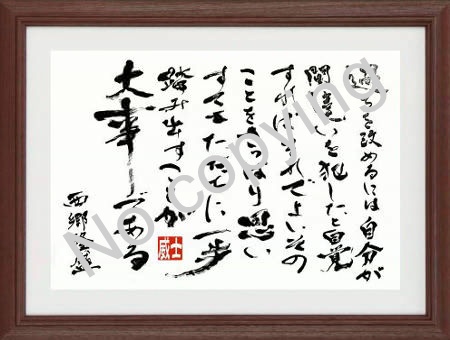 過ちを改めるには自分が
間違いを犯したと自覚
すればそれでよいその
ことをさっぱり思い
すててただちに一歩
踏み出すことが
大事である
西郷隆盛
威士
No copying